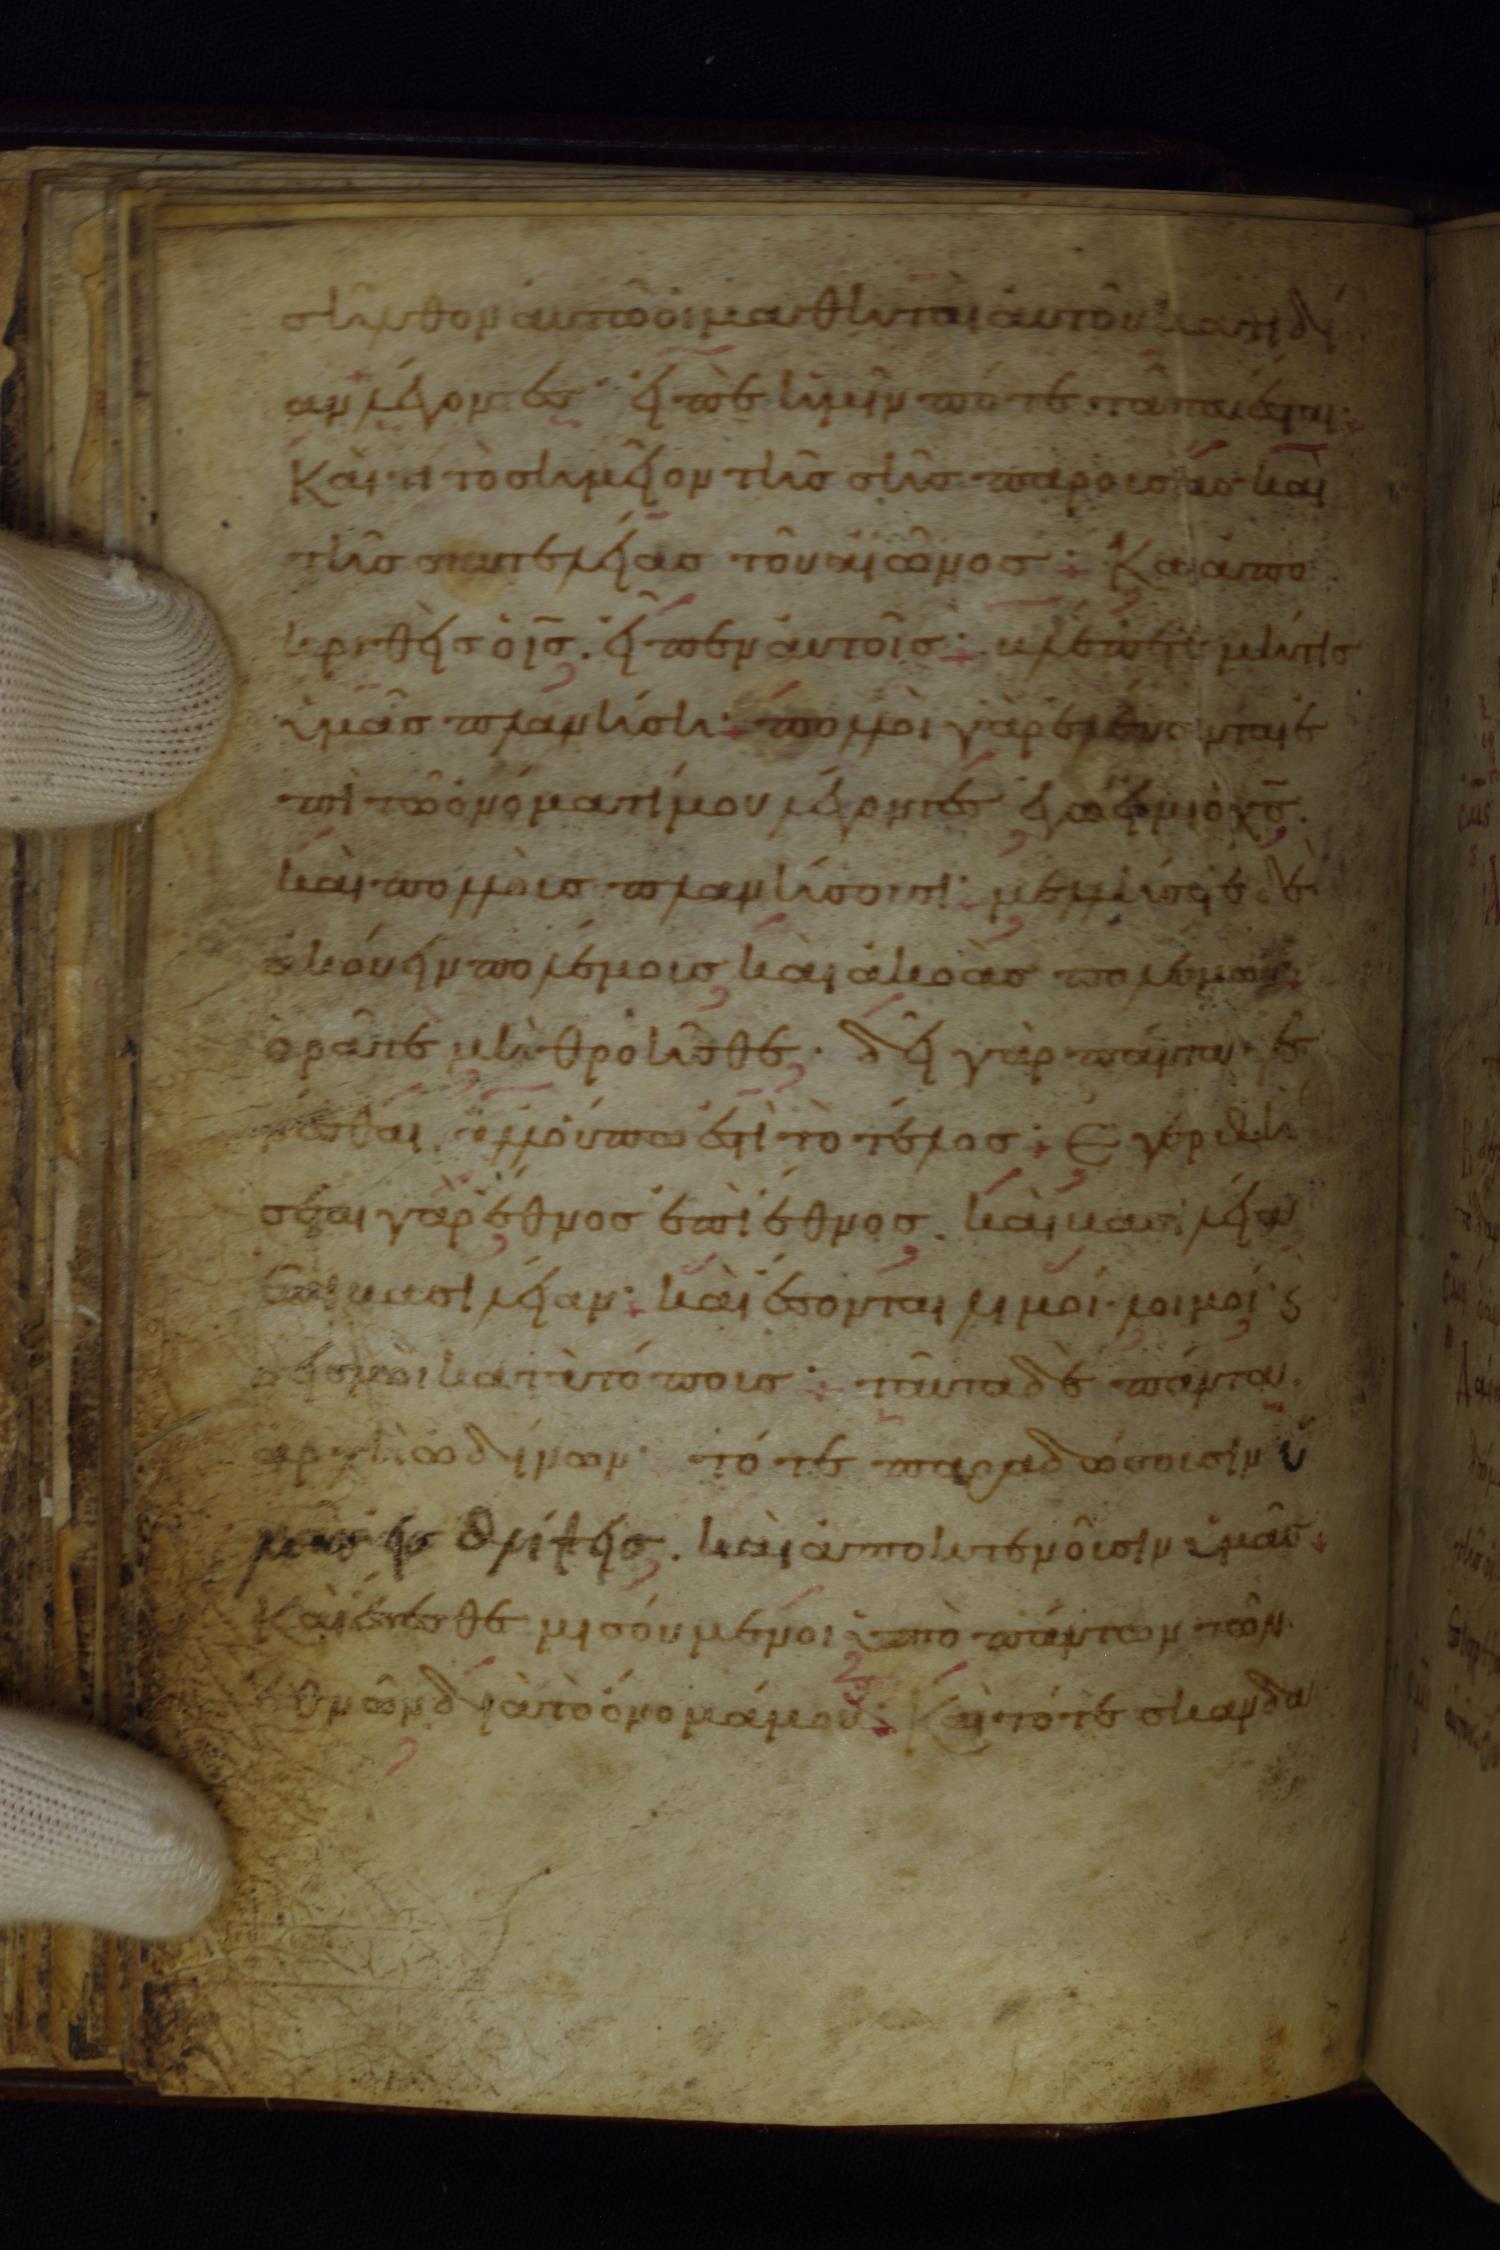 σῆλθον αυτῶ ὁι μαθηταὶ ἀυτοῦ κατιδί
αν λέγοντες· ἐιπὲ ἡμῖν πότε ταῦτα ἔσται·
Καὶ τι τὸ σημεῖον τῆς σῆς παρουσίας καὶ
τῆς συντελείας τοῦ αἰῶνος· Και ἀπο
κριθεὶς ὁ ις̄. εἶπεν ἀυτοῖς· βλέπετε μήτις
ὑμᾶς πλανήση· πολλοὶ γὰρ ἐλεύσονται ἐ
πὶ τῶ ὀνόματί μου λέγοντες ἐγώ εἰμι ὁ χς̄.
καὶ πολλοὺς πλανήσουσι· μελλήσετε δὲ
ἀκούειν πολέμους καὶ ἀκοὰς πολέμων·
ὁρᾶτε μὴ θροῆσθε· δεῖ γὰρ πάντα γε
νέσθαι. ἀλλ' όυπω ἐστὶ τὸ τέλος· Εγερθή
σεται γὰρ ἔθνος ἐπὶ ἔθνος. καὶ βασιλεία
ἐπὶ βασιλείαν· καὶ ἔσονται λιμοί· λοιμοί· ϛ
σεισμοὶ κατὰ τόπους· ταῦτα δὲ πάντα
ἀρχὴ ὠδίνων· τότε παραδώσουσιν ὑ
μας εἰς θλίψεις. καὶ ἀποκτενοῦσιν ὑμᾶς·
Καὶ ἔσεσθε μισούμενοι ὑπὸ πάντων τῶν
ἐθνῶν διὰ τὸ ὄνομά μου· Καὶ τότε σκανδα